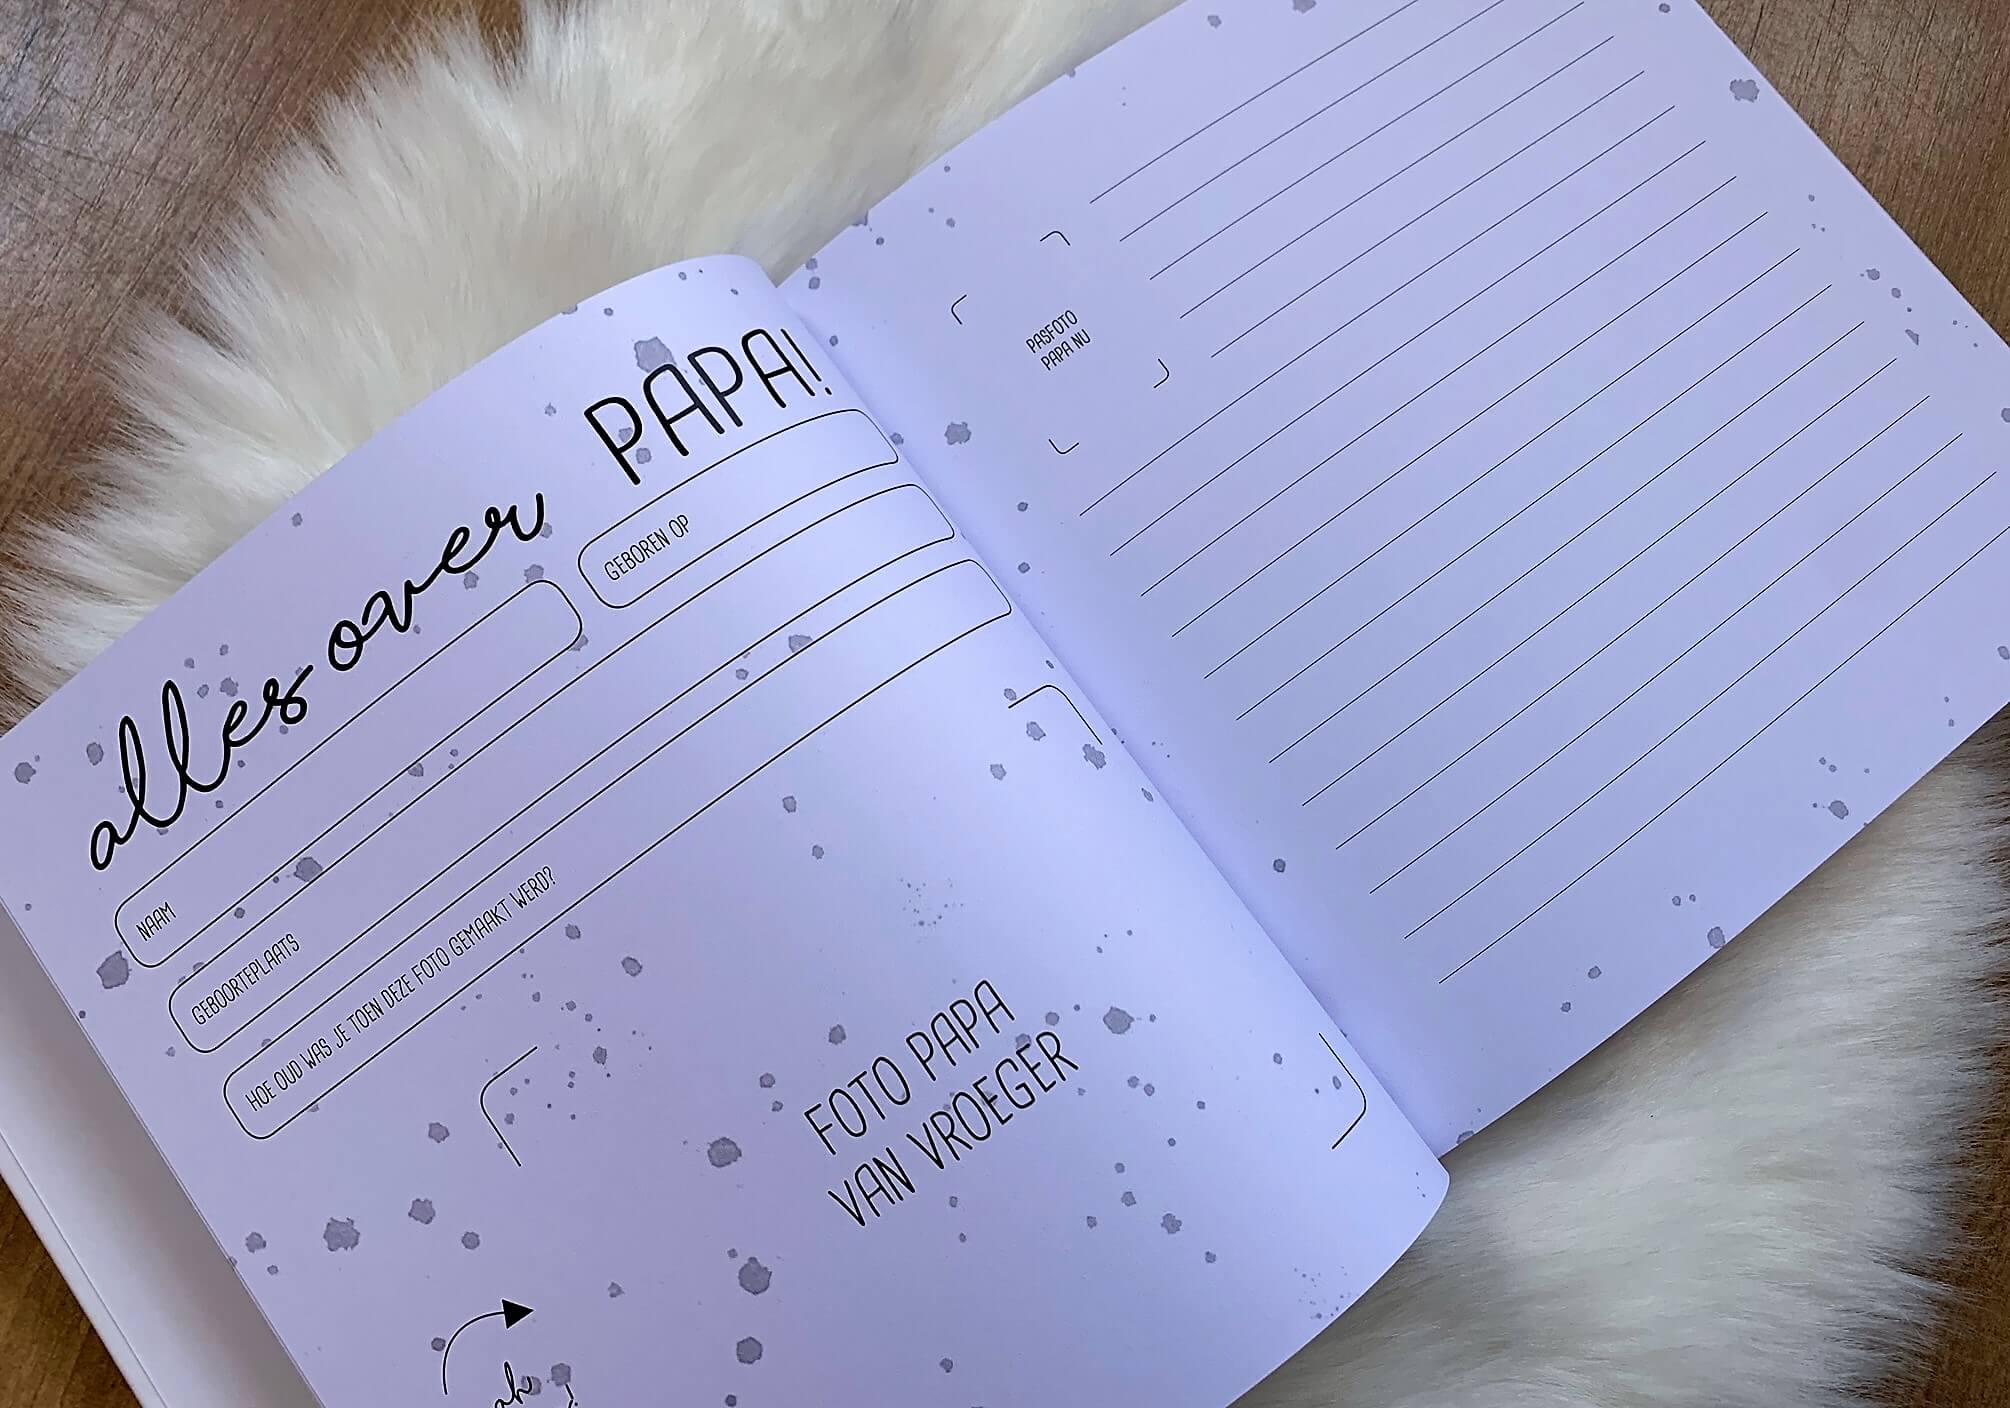 alles over PAPA!
NAAM
GEBOREN OP
GEBOORTEPLAATS
HOE OUD WAS JE TOEN DEZE FOTO GEMAAKT WERD?
FOTO PAPA
VAN VROEGER
PASFOTO
PAPA NU